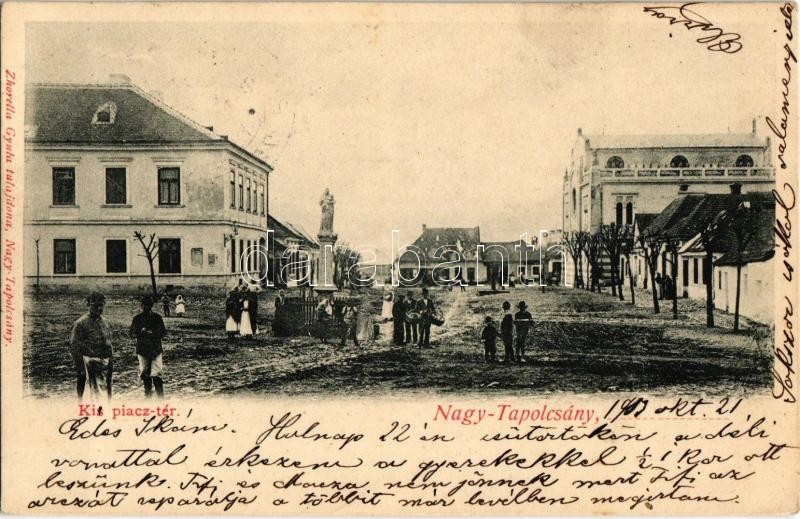 Zhorella Gyula tulajdona, Nagy-Tapolcsány.
Kis piacz-tér.
Nagy-Tapolcsány, 1903 okt. 21
Édes Ikám. Holnap 22 én csütörtökön a déli
vonattal érkezem a gyerekekkel ½ 1 kor ott
leszünk. Fifi és Macza nem jönnek mert Fifi az
arczát reparálja a többit már levélben megirtam.
Sokszor csókol valamennyiöket
darabanth